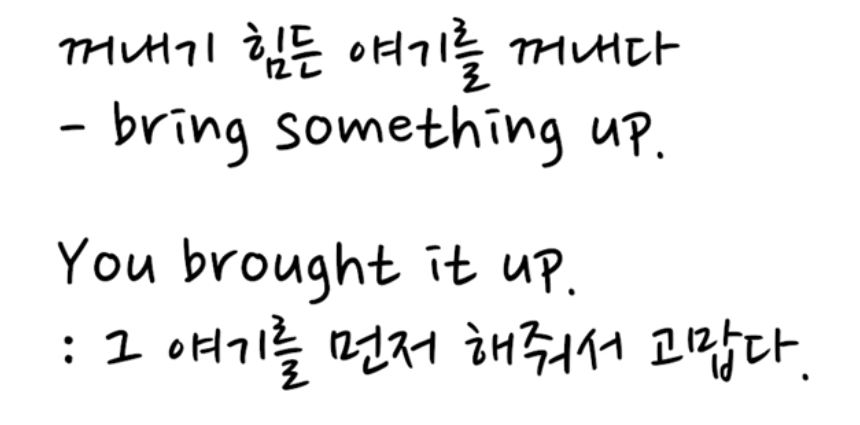 꺼내기 힘든 얘기를 꺼내다
- bring something up.
You brought it up.
: 그 얘기를 먼저 해줘서 고맙다.